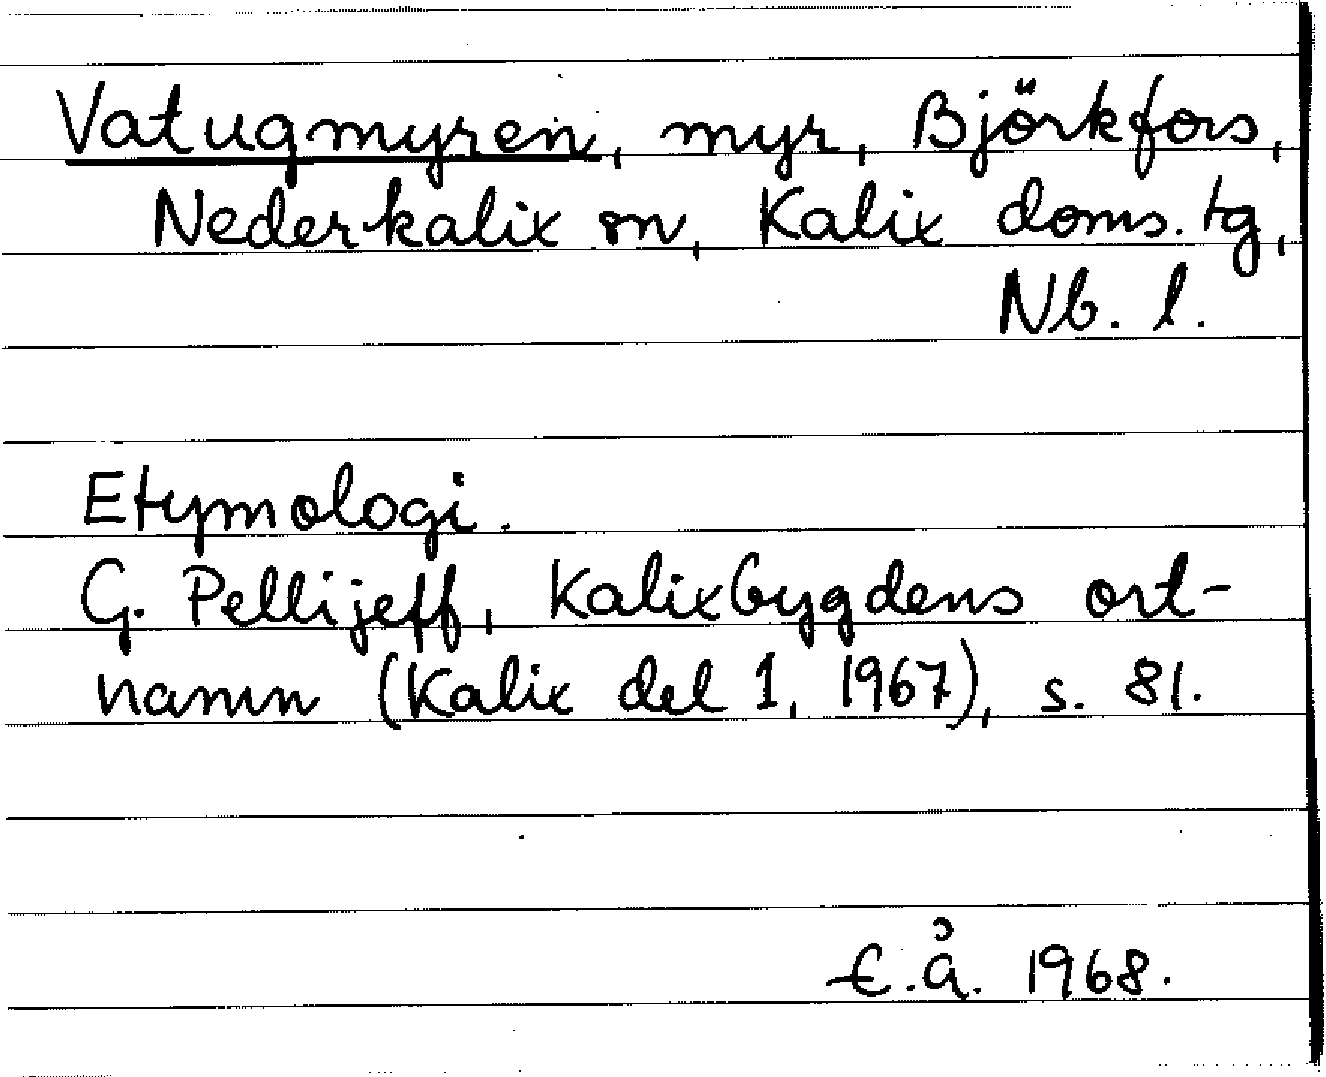 Vatugmyren, myr, Björkfors,
Nederkalix sn, Kalix doms.tg,
Nb. l.
Etymologi.
G. Pellijeff, Kalixbygdens ort-
namn (Kalix del 1, 1967), s. 81.
E.å. 1968.